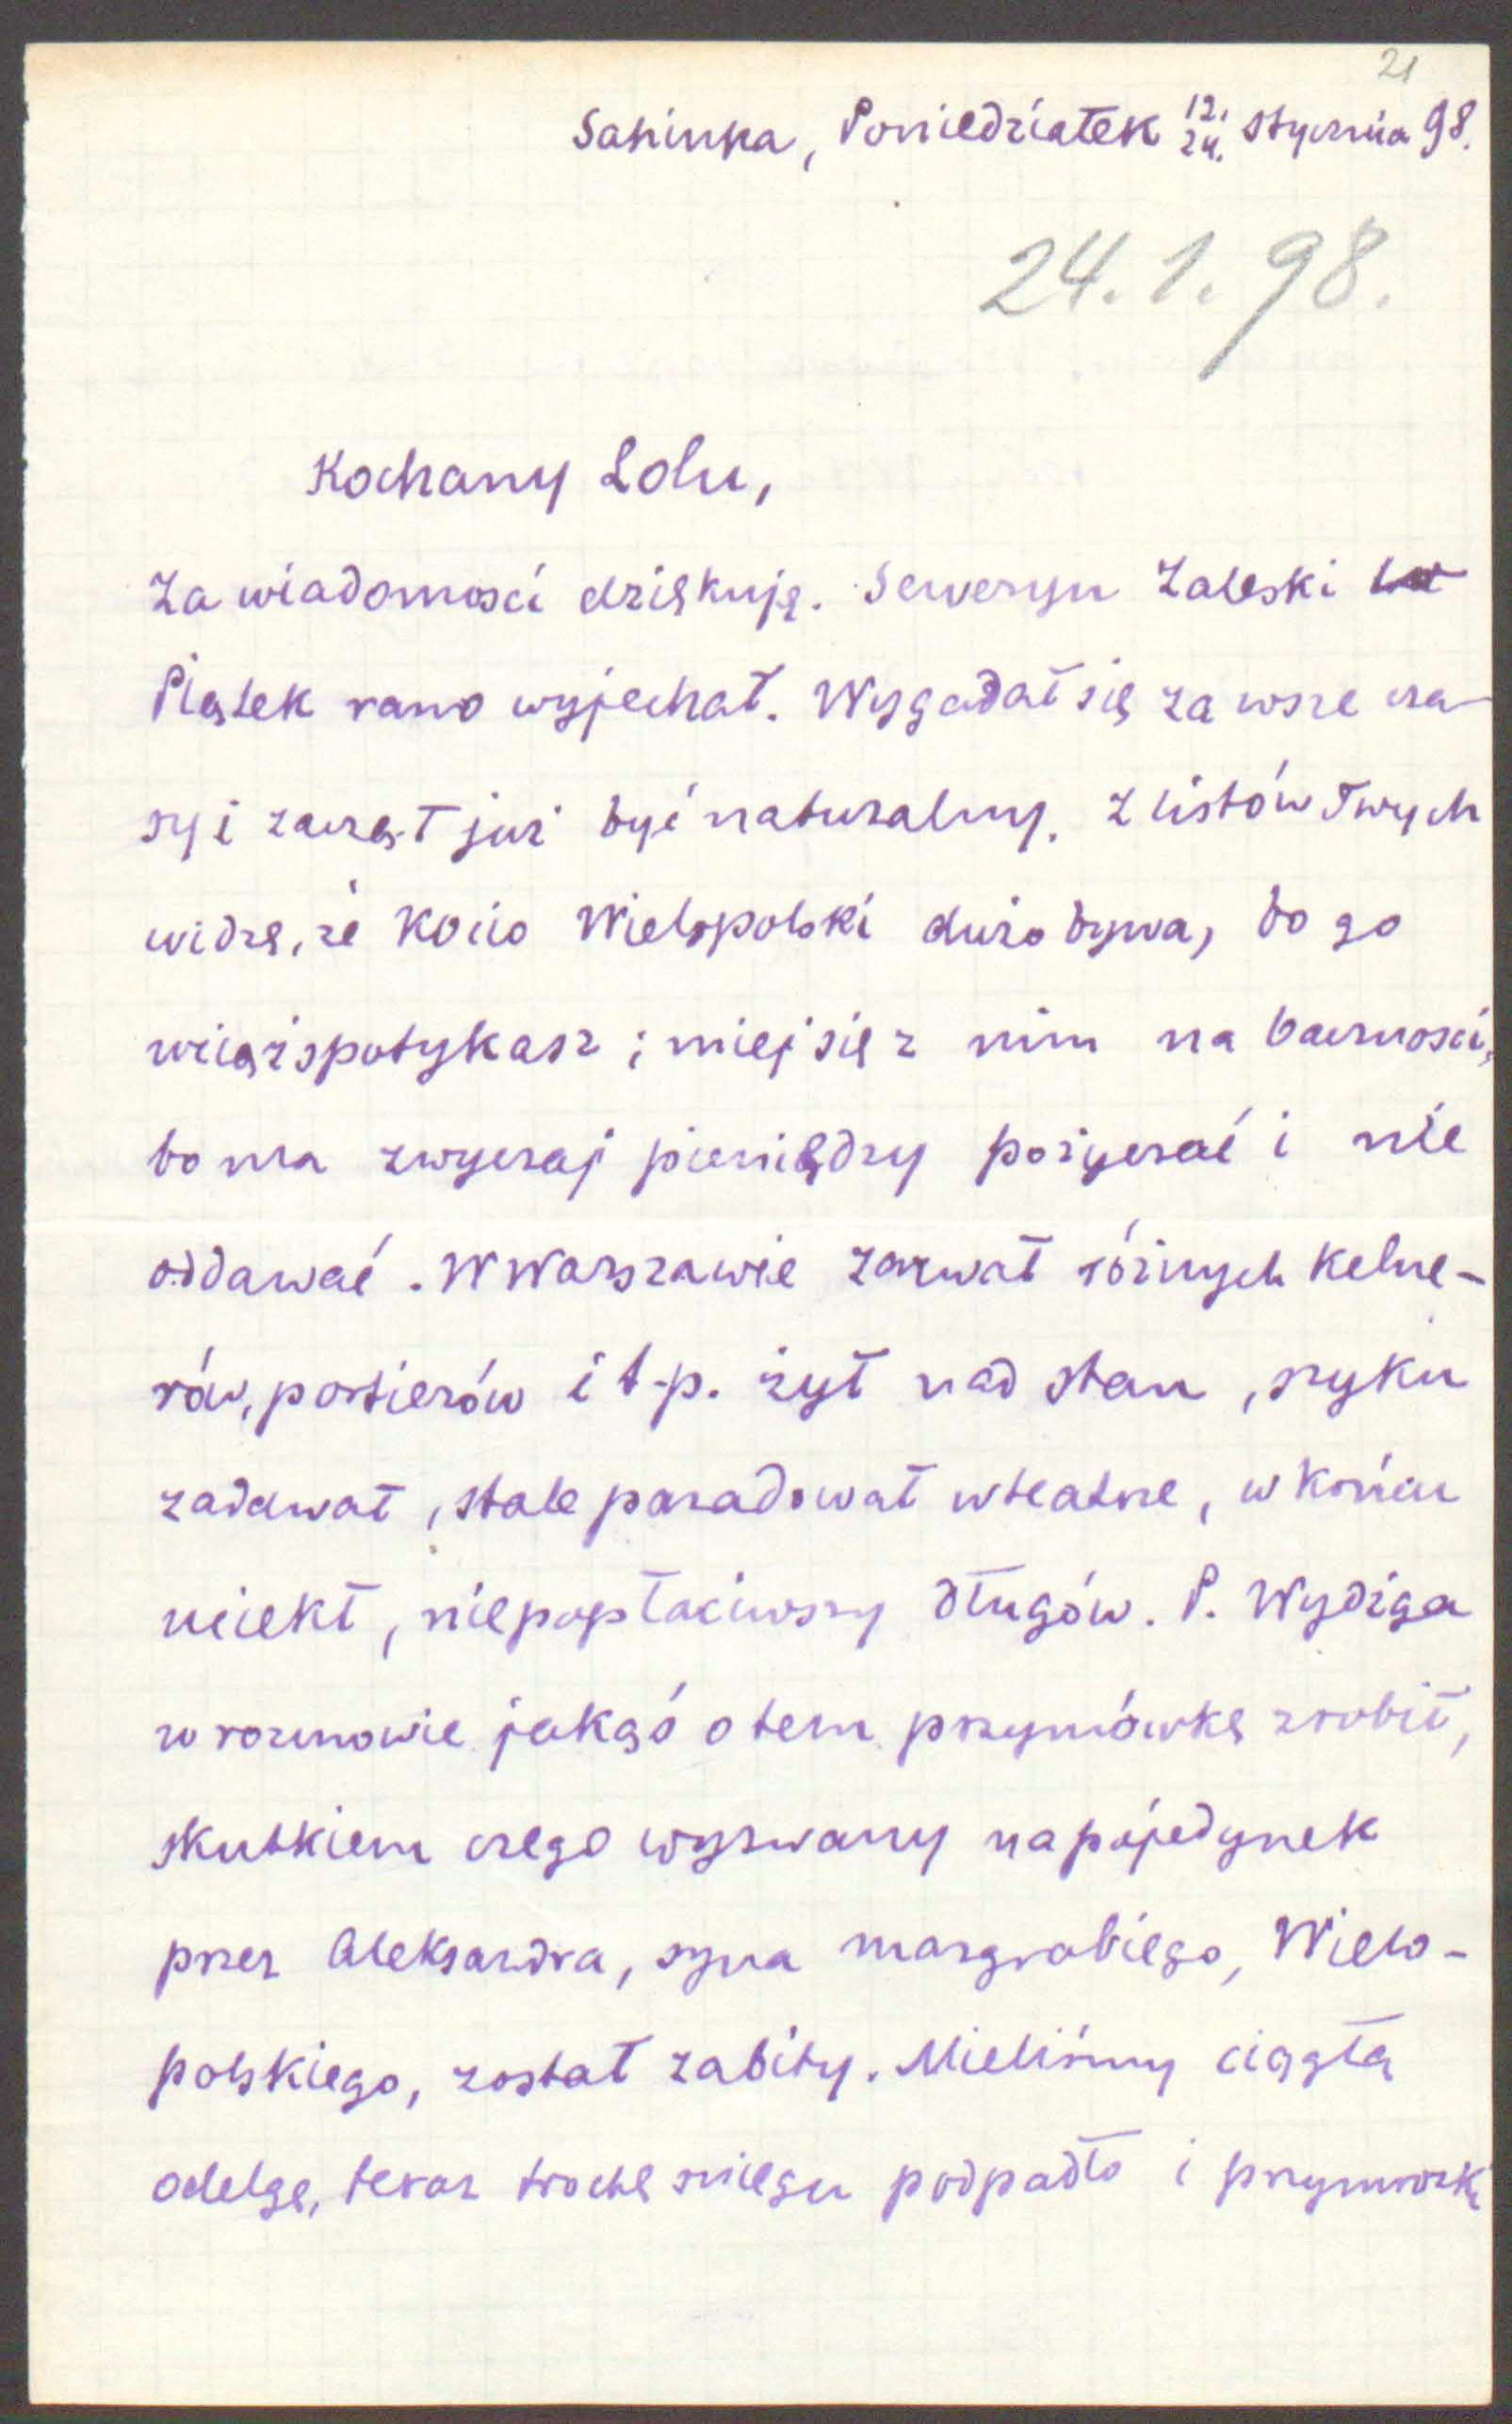 21
Sahinka, Poniedziałek 12./24. stycznia 98.
24.1.98.
Kochany Lolu,
Za wiadomości dziękuję. Seweryn Zaleski
Piątek rano wyjechał. Wygadał się za wsze cza-
sy i zaczął już być naturalny. Z listów Twych
widzę, że Kocio Wielopolski dużo bywa, bo go
wciąż spotykasz; miej się z nim na baczności,
bo ma zwyczaj pieniędzy pożyczać i nie
oddawać. W Warszawie zarwał różnych kelne-
rów, portierów i t.p. żył nad stan, szyku
zadawał, stale paradował w teatrze, w końcu
uciekł, niepopłaciwszy długów. P. Wydżga
w rozmowie jakąś o tem przymówkę zrobił,
skutkiem czego wyzwany na pojedynek
przez Aleksandra, syna margrabiego, Wielo-
polskiego, został zabity. Mieliśmy ciągłą
odelgę, teraz trochę śniegu podpadło i przymrozki